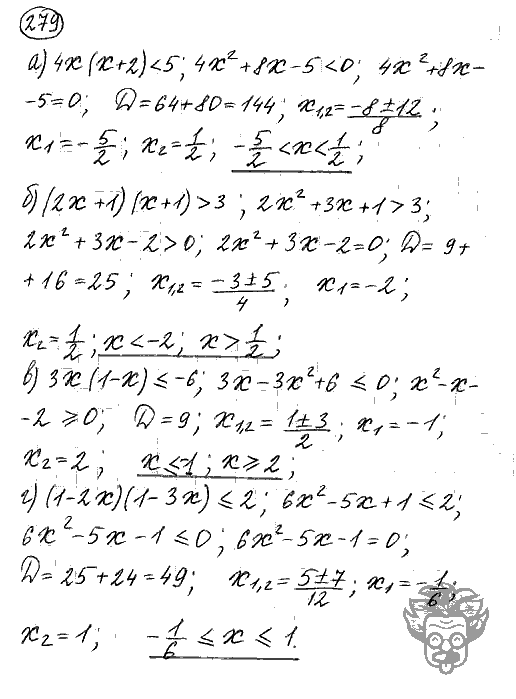 279
а) 4x(x+2)<5; 4x²+8x-5<0; 4x²+8x-
-5=0; D=64+80=144; x₁,₂=(-8±12)/8;
x₁=-5/2; x₂=1/2; -5/2<x<1/2;
б) (2x+1)(x+1)>3; 2x²+3x+1>3;
2x²+3x-2>0; 2x²+3x-2=0; D=9+
+16=25; x₁,₂=(-3±5)/4; x₁=-2;
x₂=1/2; x<-2; x>1/2;
в) 3x(1-x)≤-6; 3x-3x²+6≤0; x²-x-
-2≥0; D=9; x₁,₂=(1±3)/2; x₁=-1;
x₂=2; x≤-1; x≥2;
г) (1-2x)(1-3x)≤2; 6x²-5x+1≤2;
6x²-5x-1≤0; 6x²-5x-1=0;
D=25+24=49; x₁,₂=(5±7)/12; x₁=-1/6;
x₂=1; -1/6≤x≤1.